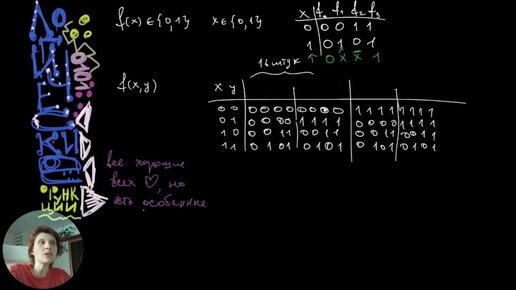 ДВОИЧЕСКИЕ
0101
ФУНК
ЦИИ
f(x) ∈ {0,1} x ∈ {0,1}
x f₀ f₁ f₂ f₃
0 0 0 1 1
1 0 1 0 1
↑ 0 x x̄ 1
16 штук
f(x,y)
x y
0 0 0 0 0 0 0 0 0 0 1 1 1 1 1 1 1 1
0 1 0 0 0 0 1 1 1 1 0 0 0 0 1 1 1 1
1 0 0 0 1 1 0 0 1 1 0 0 1 1 0 0 1 1
1 1 0 1 0 1 0 1 0 1 0 1 0 1 0 1 0 1
все хорошие
всех ♡, но
есть особенные